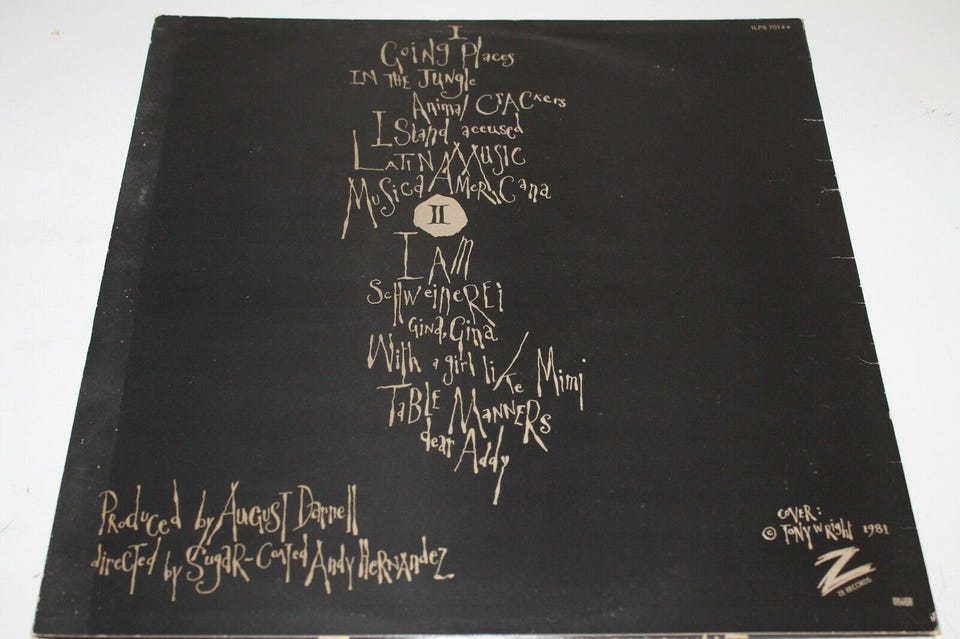 ILPS 7014
I
Going Places
IN THE Jungle
Animal CrACkers
I Stand accused
LATIN MUSIC
Musica AMERiCana
II
I AM
ScHweineREi
Gina, Gina
With a girl like Mimi
TaBLE MaNNERs
dear Addy
Produced by August Darnell
directed by Sugar-Coated Andy HERNandez
COVER:
© TONY WRight 1981
Z
ZE RECORDS